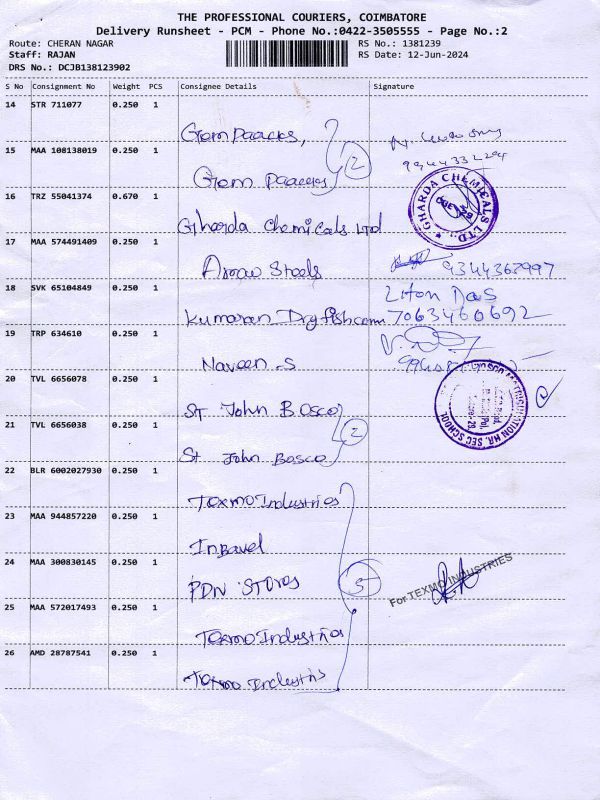 THE PROFESSIONAL COURIERS, COIMBATORE
Delivery Runsheet - PCM - Phone No.:0422-3505555 - Page No.:2
Route: CHERAN NAGAR RS No.: 1381239
Staff: RAJAN RS Date: 12-Jun-2024
DRS No.: DCJB138123902
S No Consignment No Weight PCS Consignee Details Signature
14 STR 711077 0.250 1
Grom Paackes,
15 MAA 108138019 0.250 1
2
Grom Paackes
16 TRZ 55041374 0.670 1
Gharda Chemicals Ltd
GHARDA CHEMICALS LTD.
17 MAA 574491409 0.250 1
Arrow Steels 9344367997
18 SVK 65104849 0.250 1
Liton Das
Kumaran Dryfishcom 7063460692
19 TRP 634610 0.250 1
Naveen .S
20 TVL 6656078 0.250 1
St John Bosco
21 TVL 6656038 0.250 1
2
HR. SEC SCHOOL
St John Bosco
22 BLR 6002027930 0.250 1
Texmo Industries
23 MAA 944857220 0.250 1
Inbavel
24 MAA 300830145 0.250 1
PDN Stores 5
For TEXMO INDUSTRIES
25 MAA 572017493 0.250 1
Texmo Industries
26 AMD 28787541 0.250 1
Texmo Industris